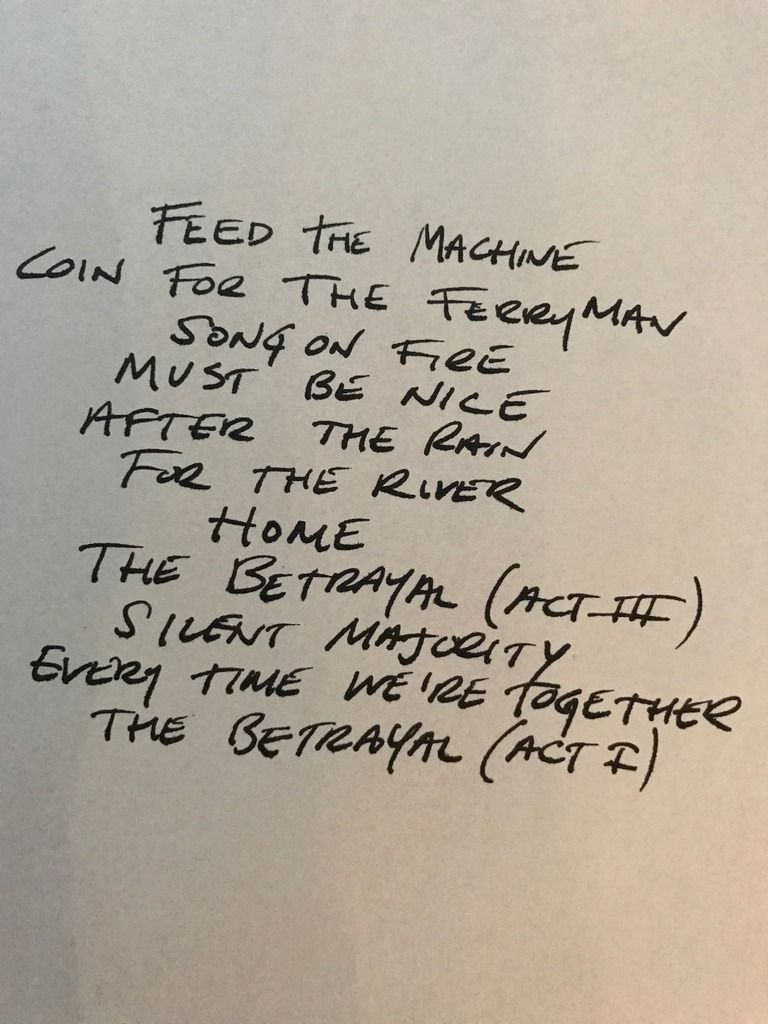 FEED THE MACHINE
COIN FOR THE FERRYMAN
SONG ON FIRE
MUST BE NICE
AFTER THE RAIN
FOR THE RIVER
HOME
THE BETRAYAL (ACT III)
SILENT MAJORITY
EVERY TIME WE'RE TOGETHER
THE BETRAYAL (ACT I)